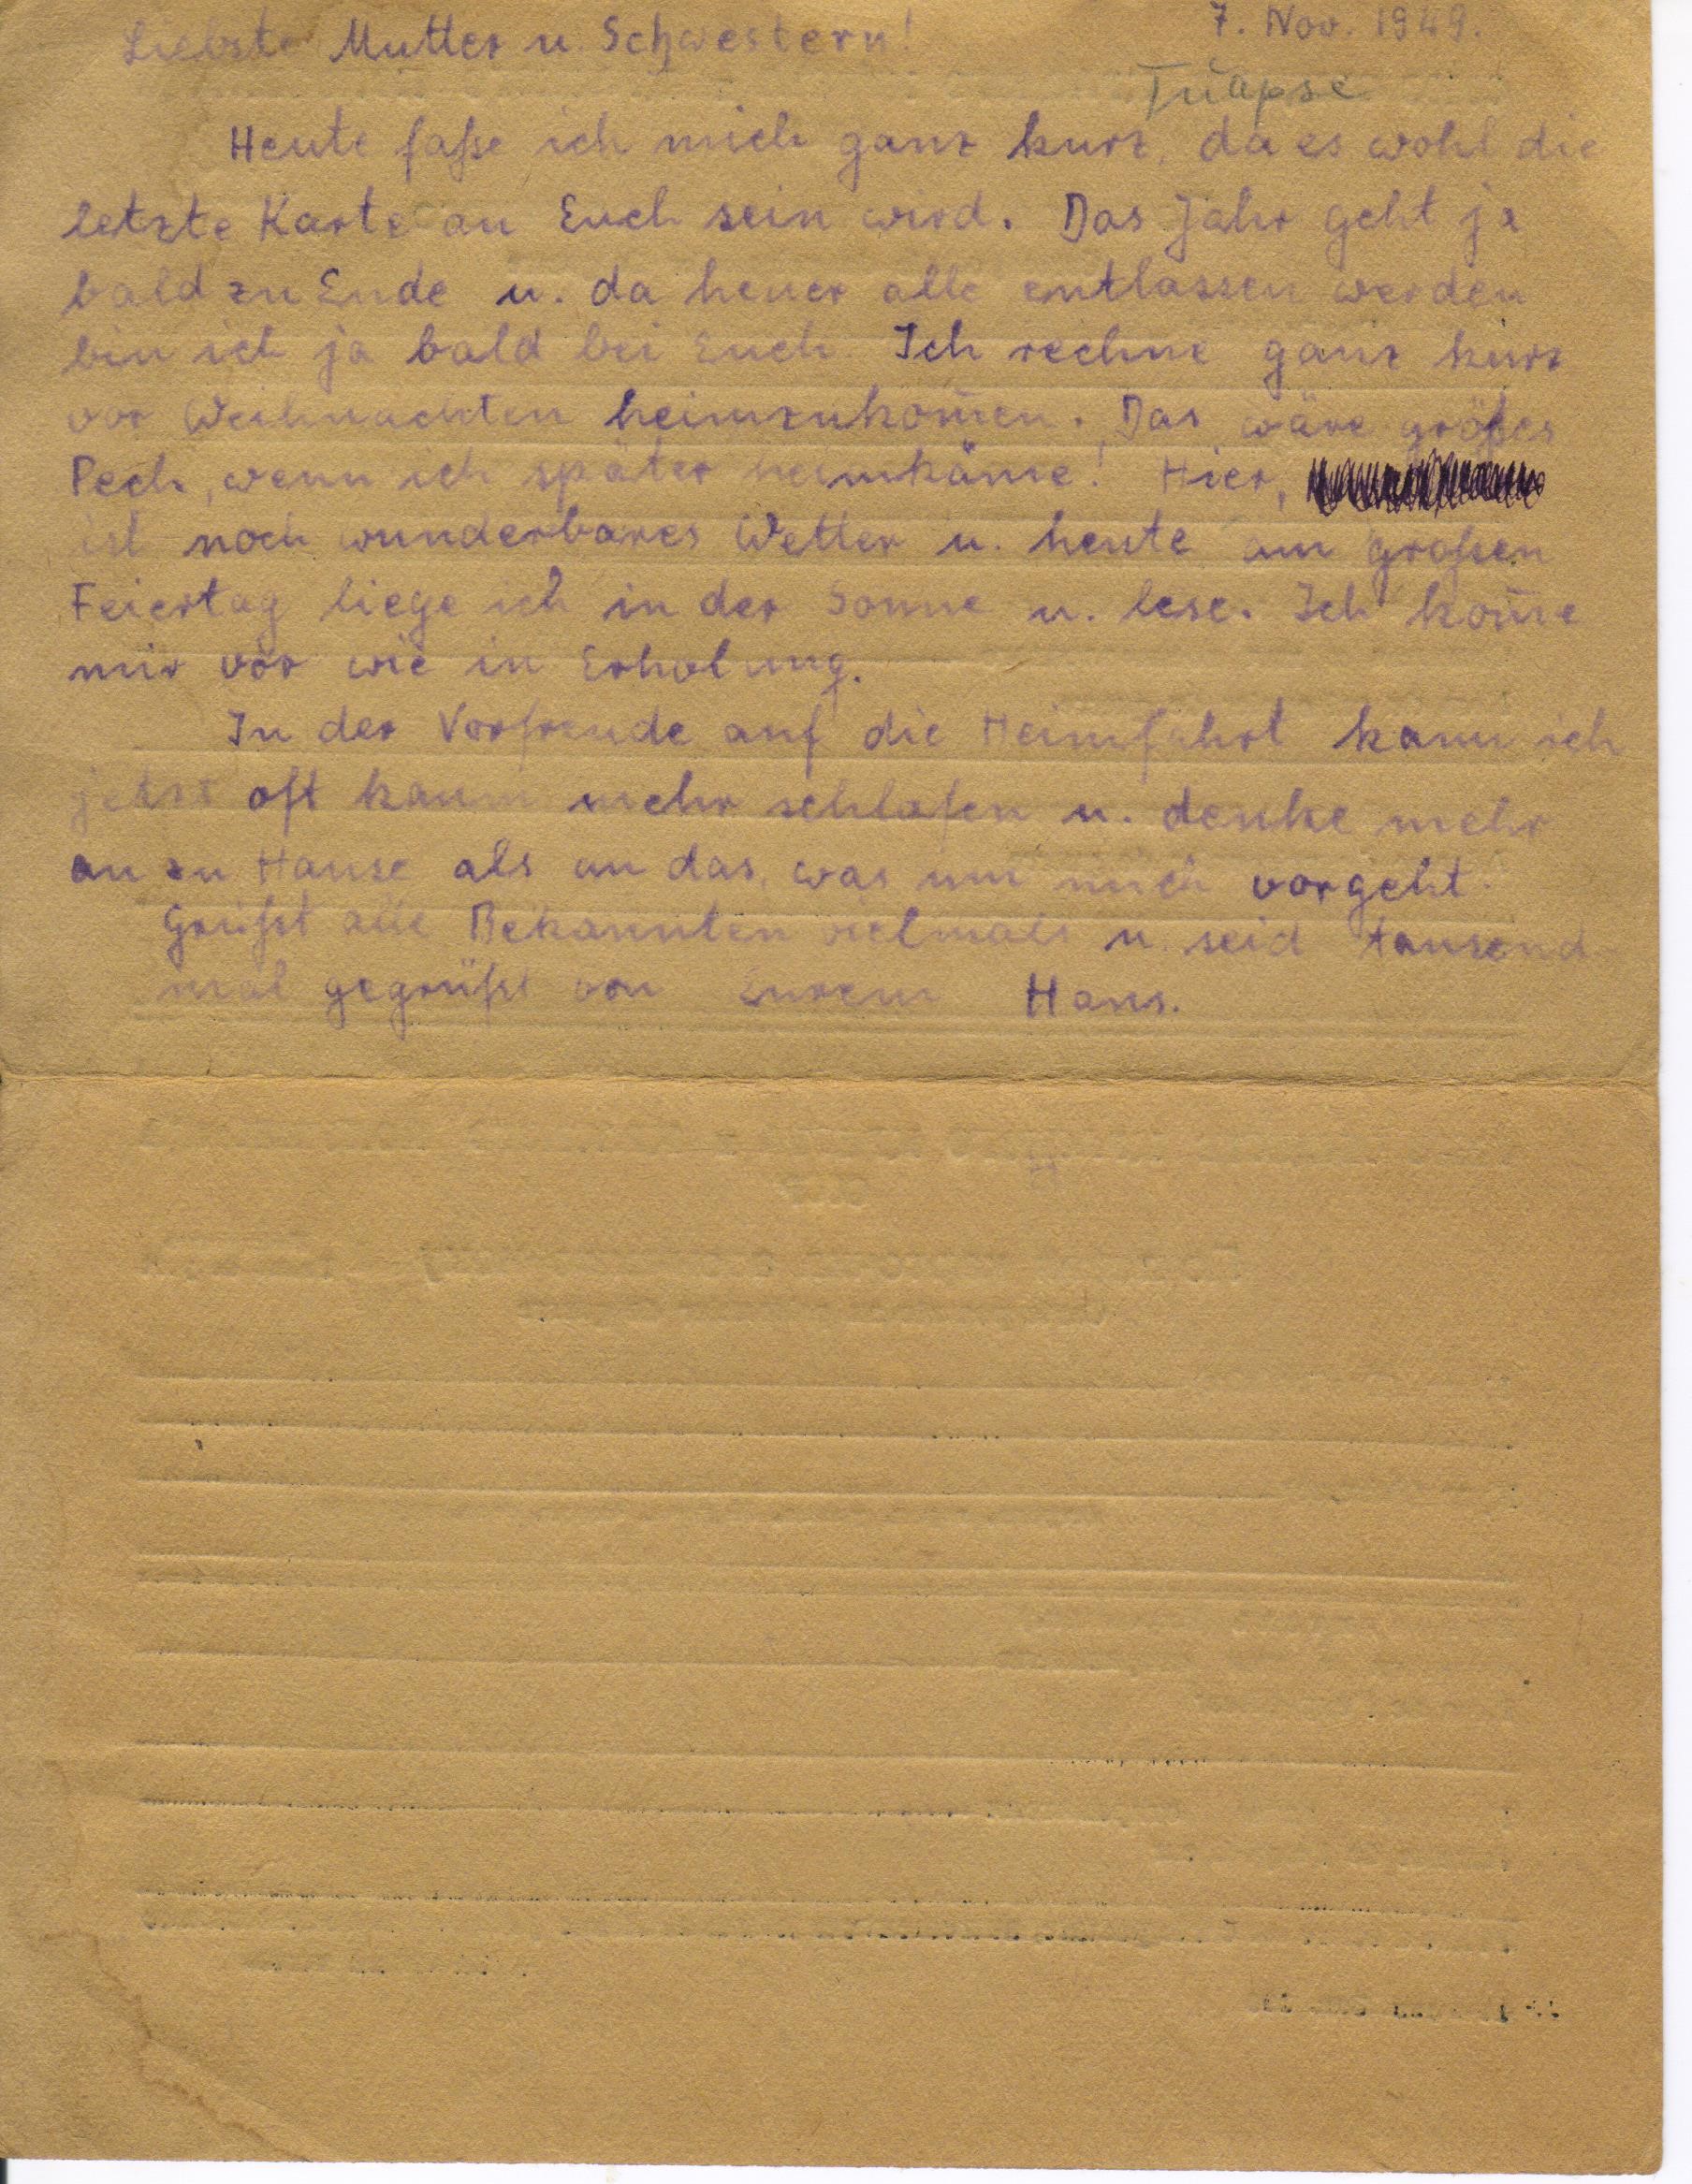 Liebste Mutter u. Schwestern! 7. Nov. 1949.
Tuapse
Heute faße ich mich ganz kurz, da es wohl die
letzte Karte an Euch sein wird. Das Jahr geht ja
bald zu Ende u. da heuer alle entlassen werden
bin ich ja bald bei Euch Ich rechne ganz kurz
vor Weihnachten heimzukom̄en. Das wäre großes
Pech, wenn ich später heimkäme! Hier,
ist noch wunderbares Wetter u. heute am großen
Feiertag liege ich in der Sonne u. lese. Ich kom̄e
mir vor wie in Erholung.
In der Vorfreude auf die Heimfahrt kann ich
jetzt oft kaum mehr schlafen u. denke mehr
an zu Hause als an das, was um mich vorgeht.
Grüßt alle Bekannten vielmals u. seid tausend
mal gegrüßt von Eurem Hans.